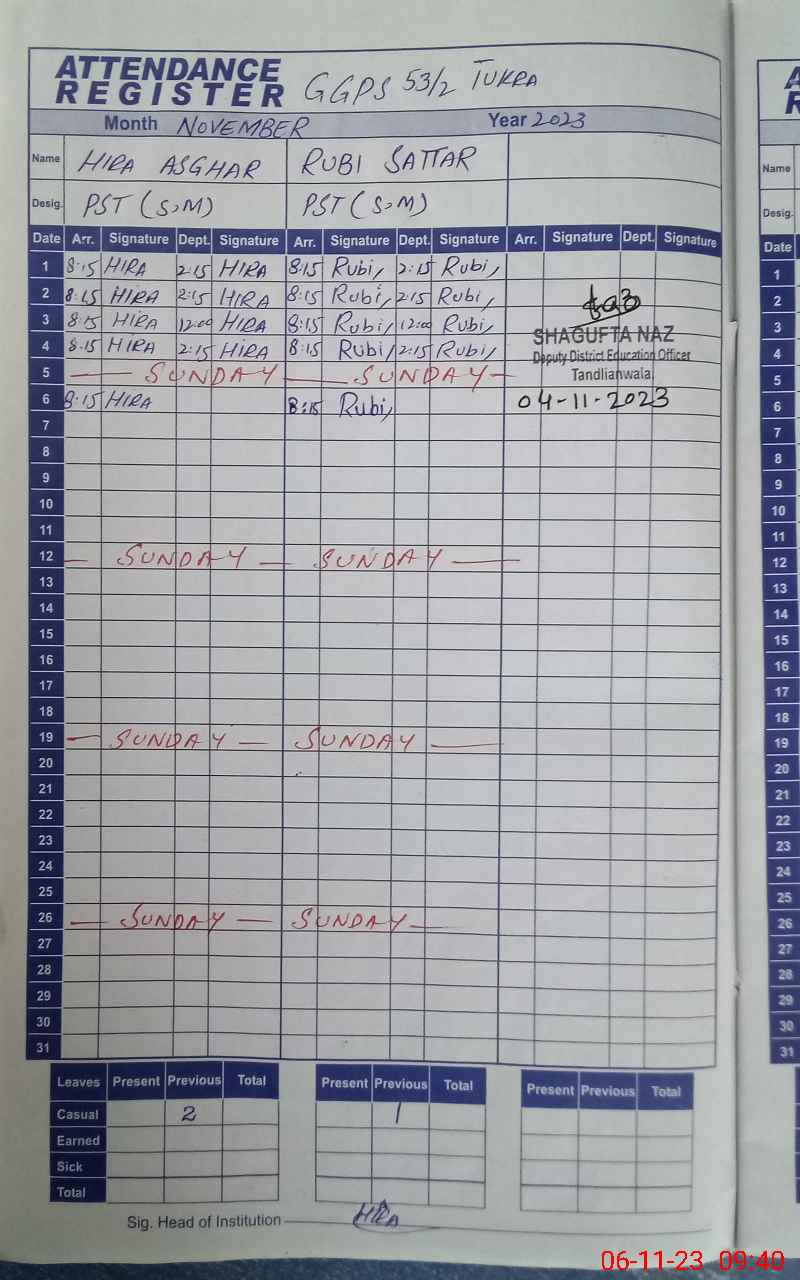 ATTENDANCE
REGISTER GGPS 53/2 TUKRA
Month NOVEMBER Year 2023
Name HIRA ASGHAR RUBI SATTAR
Desig. PST (S,M) PST (S,M)
Date Arr. Signature Dept. Signature Arr. Signature Dept. Signature Arr. Signature Dept. Signature
1 8:15 HIRA 2:15 HIRA 8:15 Rubi, 2:15 Rubi,
2 8:15 HIRA 2:15 HIRA 8:15 Rubi, 2:15 Rubi,
3 8:15 HIRA 12:00 HIRA 8:15 Rubi, 12:00 Rubi,
SHAGUFTA NAZ
4 8:15 HIRA 2:15 HIRA 8:15 Rubi, 2:15 Rubi,
Deputy District Education Officer
5 SUNDAY SUNDAY
Tandlianwala
6 8:15 HIRA 8:15 Rubi, 04-11-2023
7
8
9
10
11
12 SUNDAY SUNDAY
13
14
15
16
17
18
19 SUNDAY SUNDAY
20
21
22
23
24
25
26 SUNDAY SUNDAY
27
28
29
30
31
Leaves Present Previous Total Present Previous Total Present Previous Total
Casual 2 1
Earned
Sick
Total
Sig. Head of Institution HIRA
Name
Desig.
Date
1
2
3
4
5
6
7
8
9
10
11
12
13
14
15
16
17
18
19
20
21
22
23
24
25
26
27
28
29
30
31
06-11-23 09:40